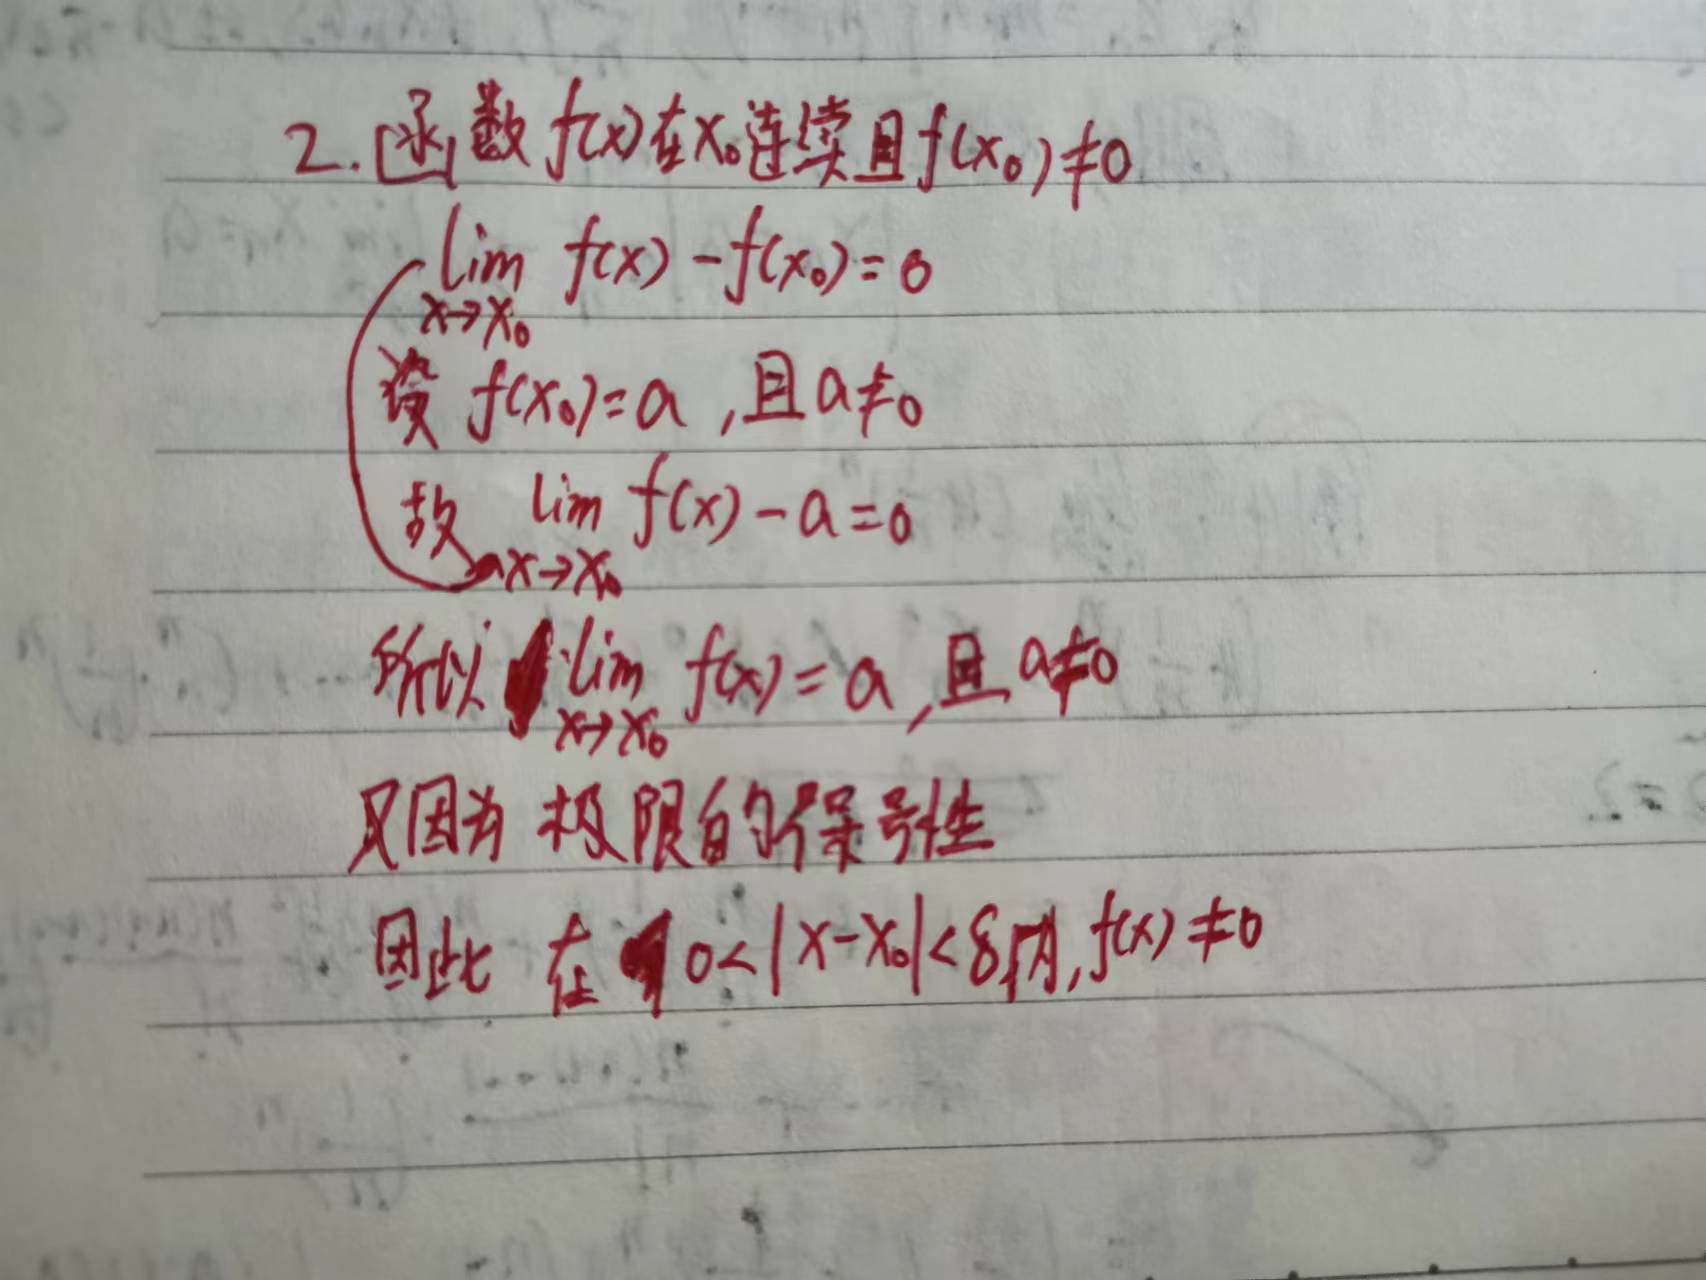 2. 函数 f(x)在x₀连续且f(x₀)≠0
lim f(x) - f(x₀) = 0
x→x₀
设 f(x₀)=a ,且a≠0
故 lim f(x) - a = 0
x→x₀
所以 lim f(x) = a ,且 a≠0
x→x₀
又因为 极限的保号性
因此 在 0<|x-x₀|<δ内,f(x)≠0